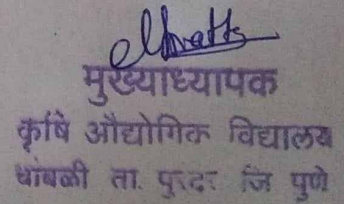 मुख्याध्यापक
कृषि औद्योगिक विद्यालय
धांबळी ता. पुरंदर जि पुणे